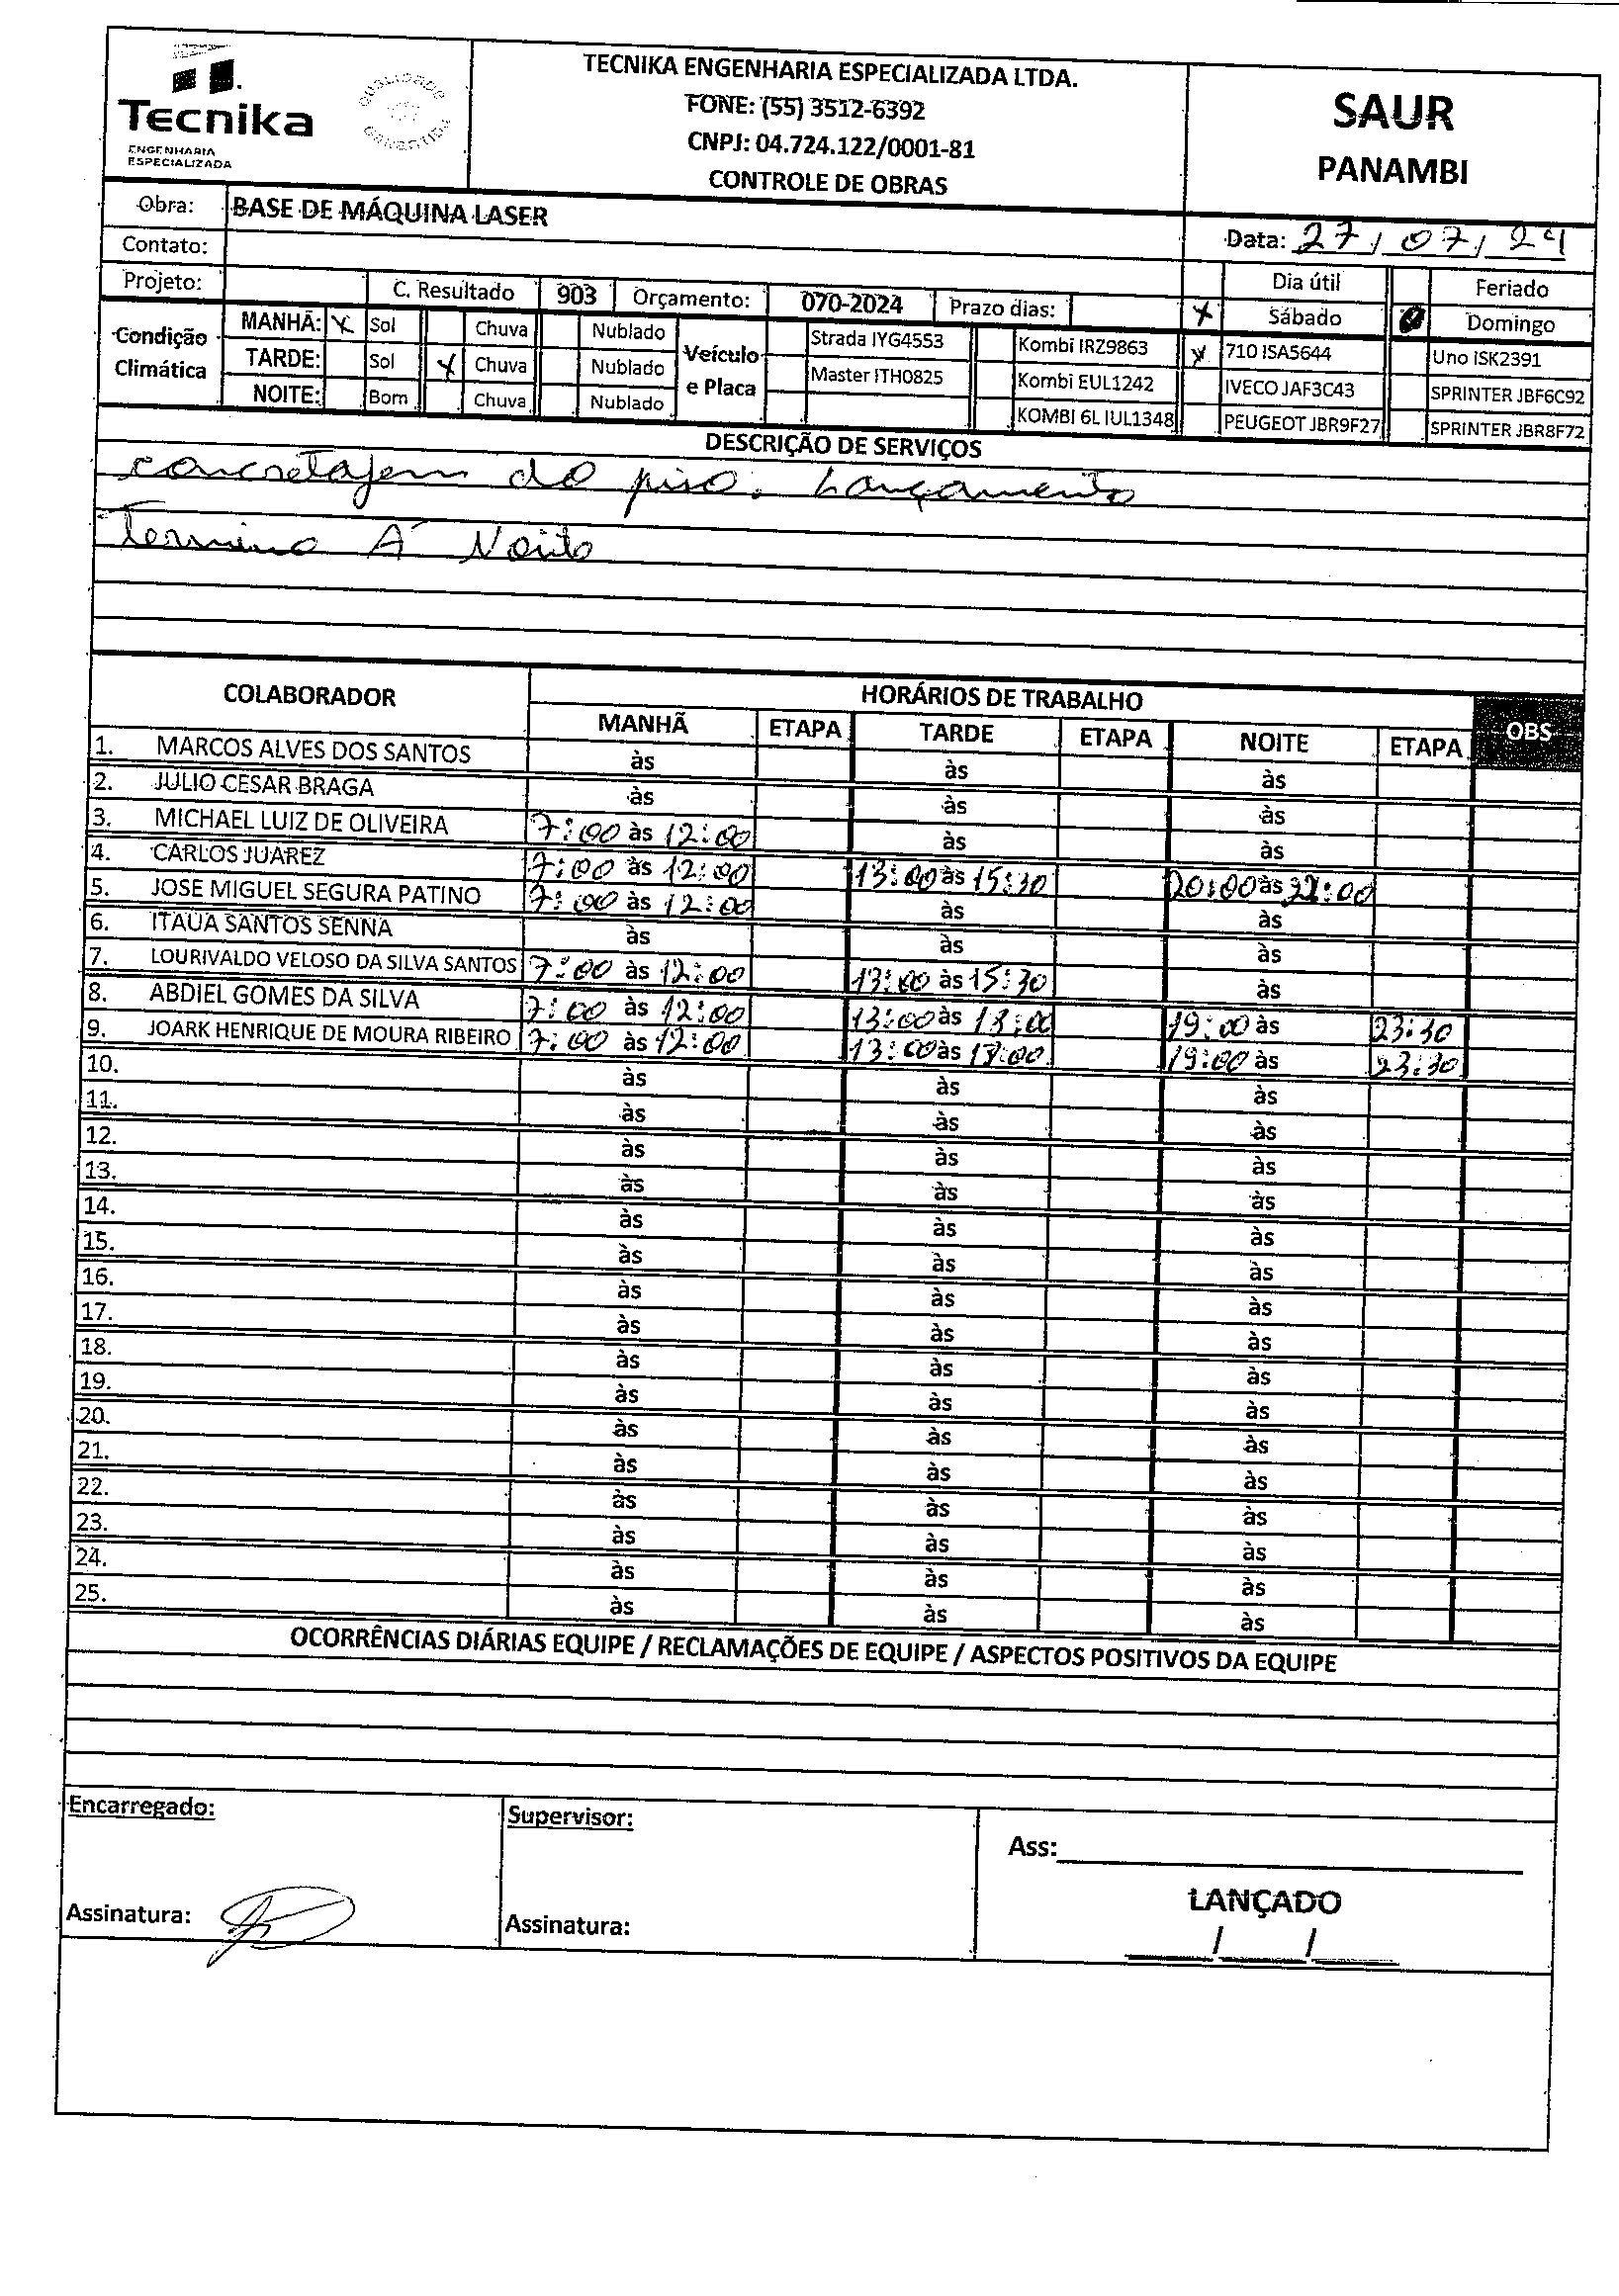 Tecnika
ENGENHARIA
ESPECIALIZADA
QUALIDADE
GARANTIDA
TECNIKA ENGENHARIA ESPECIALIZADA LTDA.
FONE: (55) 3512-6392
CNPJ: 04.724.122/0001-81
CONTROLE DE OBRAS
SAUR
PANAMBI
Obra: BASE DE MÁQUINA LASER
Data: 27/07/24
Contato:
Projeto: C. Resultado 903 Orçamento: 070-2024 Prazo dias:
Dia útil Feriado
X Sábado Domingo
Condição Climática
MANHÃ: X Sol Chuva Nublado
TARDE: Sol X Chuva Nublado
NOITE: Bom Chuva Nublado
Veículo e Placa
Strada IYG4553 Kombi IRZ9863 X 710 ISA5644 Uno ISK2391
Master ITH0825 Kombi EUL1242 IVECO JAF3C43 SPRINTER JBF6C92
KOMBI 6L IUL1348 PEUGEOT JBR9F27 SPRINTER JBR8F72
DESCRIÇÃO DE SERVIÇOS
concretajem do piso. Lançamento
Termino Á Noite
COLABORADOR HORÁRIOS DE TRABALHO OBS
MANHÃ ETAPA TARDE ETAPA NOITE ETAPA
1. MARCOS ALVES DOS SANTOS às às às
2. JULIO CESAR BRAGA às às às
3. MICHAEL LUIZ DE OLIVEIRA 7:00 às 12:00 às às
4. CARLOS JUAREZ 7:00 às 12:00 13:00 às 15:30 20:00 às 22:00
5. JOSE MIGUEL SEGURA PATINO 7:00 às 12:00 às às
6. ITAUA SANTOS SENNA às às às
7. LOURIVALDO VELOSO DA SILVA SANTOS 7:00 às 12:00 13:00 às 15:30 às
8. ABDIEL GOMES DA SILVA 7:00 às 12:00 13:00 às 18:00 19:00 às 23:30
9. JOARK HENRIQUE DE MOURA RIBEIRO 7:00 às 12:00 13:00 às 18:00 19:00 às 23:30
10. às às às
11. às às às
12. às às às
13. às às às
14. às às às
15. às às às
16. às às às
17. às às às
18. às às às
19. às às às
20. às às às
21. às às às
22. às às às
23. às às às
24. às às às
25. às às às
OCORRÊNCIAS DIÁRIAS EQUIPE / RECLAMAÇÕES DE EQUIPE / ASPECTOS POSITIVOS DA EQUIPE
Encarregado: Supervisor: Ass:
LANÇADO
Assinatura: Assinatura: / /